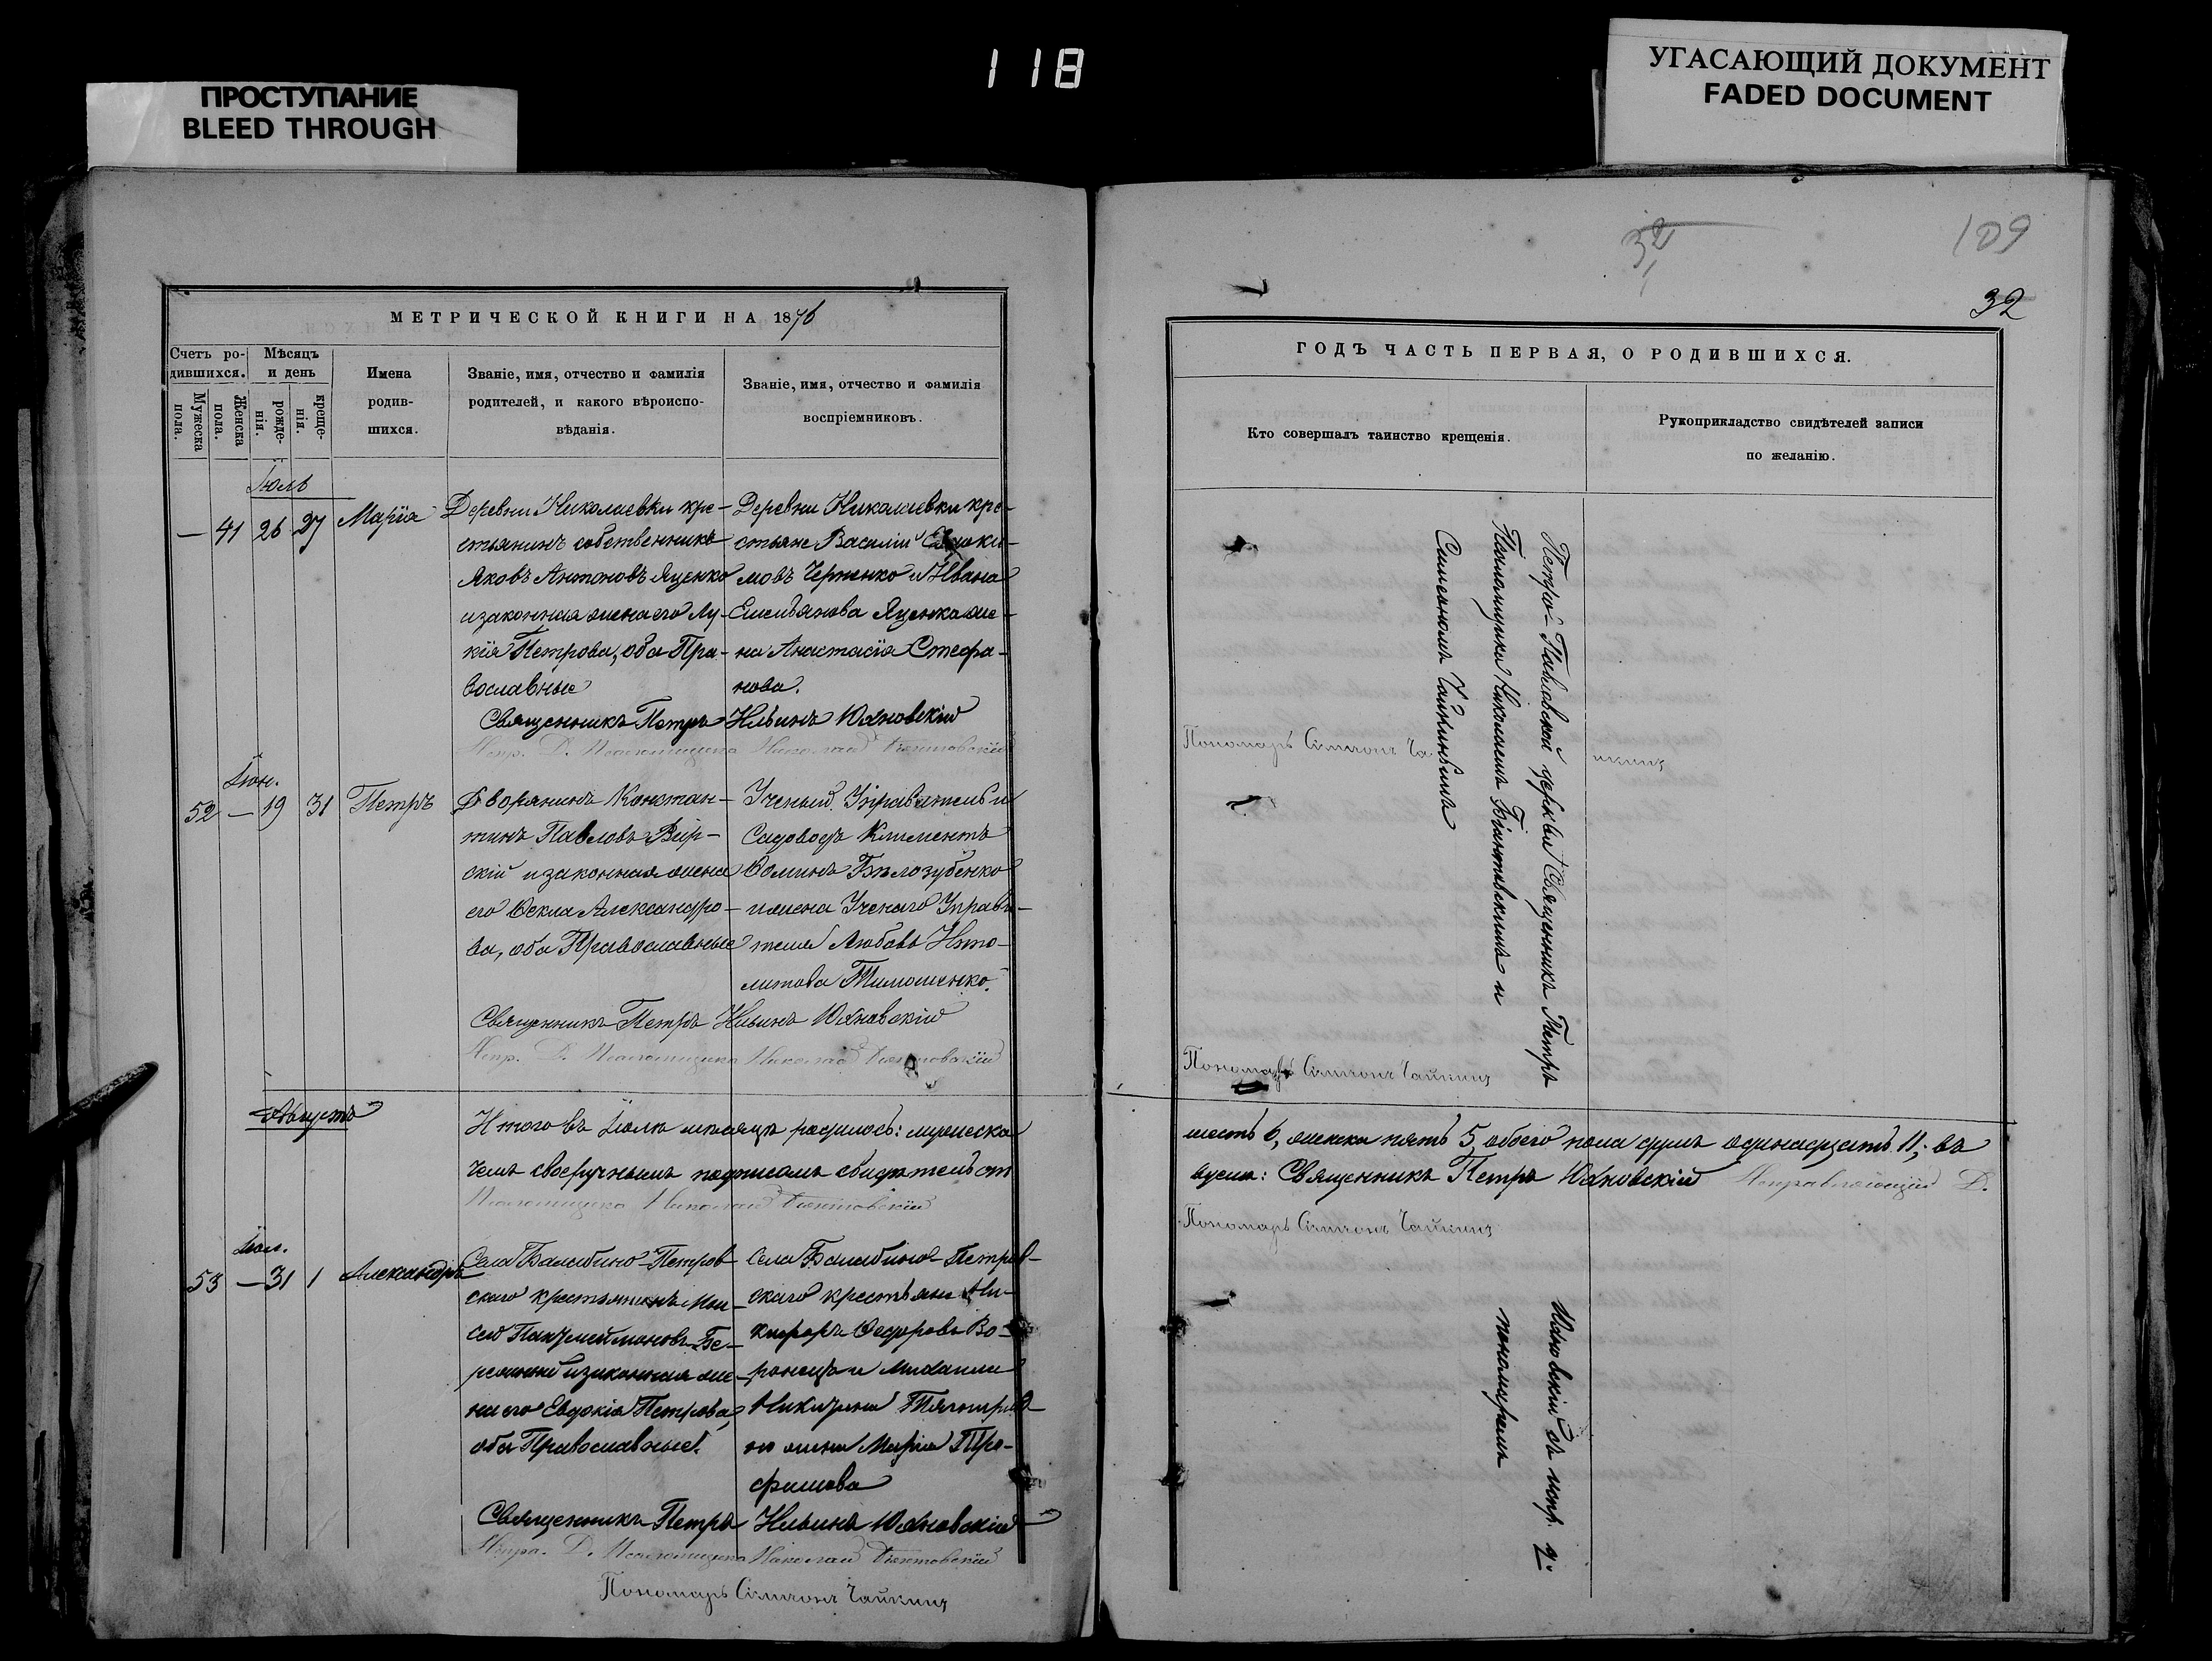 118
ПРОСТУПАНИЕ
BLEED THROUGH
УГАСАЮЩИЙ ДОКУМЕНТ
FADED DOCUMENT
МЕТРИЧЕСКОЙ КНИГИ НА 1876
Счетъ ро-
дившихся.
Мужеска
пола.
Женска
пола.
Мѣсяцъ
и день
рожде-
нія.
креще-
нія.
Имена
родив-
шихся.
Званіе, имя, отчество и фамилія
родителей, и какого вѣроиспо-
вѣданія.
Званіе, имя, отчество и фамилія
воспріемниковъ.
Іюль
— 41 26 27 Марія
Деревни Николаевки кре-
стьянинъ собственникъ
Яковъ Антоновъ Яценко
и законная жена его Лу-
кія Петрова, оба Пра-
вославные
Деревни Николаевки кре-
стьяне Василій Евдоки-
мовъ Черненко и Ивана
Емельянова Яценка же-
на Анастасія Стефа-
нова.
Священникъ Петръ Ильинъ Юхновскій
Испр. Д. Псаломщика Николай
Іюн.
52 — 19 31 Петръ
Дворянинъ Констан-
тинъ Павловъ Вир-
скій и законная жена
его Ѳекла Александро-
ва, оба Православные
Ученый Управитель и
Садоводъ Климентъ
Ѳоминъ Бѣлозубенко
и жена Ученаго Управи-
теля Любовь Иппо-
литова Тимошенко.
Священникъ Петръ Ильинъ Юхновскій
Испр. Д. Псаломщика Николай
Августъ
Итого въ Іюлѣ мѣсяцѣ родилось: мужеска
чемъ своеручнымъ подписомъ свидѣтельст
Псаломщика Николай
Іюл.
53 — 31 1 Александръ
Села Балабино-Петров
скаго крестьянинъ Мои-
сей Пантелеймоновъ
и законная же-
на его Евдокія Петрова,
оба Православные.
Села Балабино-Петров-
скаго крестьяне Ни-
кифоръ Ѳедоровъ Во-
ронецъ и Михаила
Никитина
жена Марія Тро-
фимова
Священникъ Петръ Ильинъ Юхновскій
Испра. Д. Псаломщика Николай
Пономарь Симеонъ Чайкинъ
109
32
32
ГОДЪ ЧАСТЬ ПЕРВАЯ, О РОДИВШИХСЯ.
Кто совершалъ таинство крещенія.
Рукоприкладство свидѣтелей записи
по желанію.
Петро-Павловской церкви Священникъ Петръ
Псаломщика Николаемъ и
Симеономъ Чайкинымъ
Пономарь Симеонъ Чайкинъ
Пономарь Симеонъ Чайкинъ
шесть 6, женска пять 5, обоего пола душъ одинадцать 11; въ
вуемъ: Священникъ Петръ Юхновскій Исправляющій Д.
Пономарь Симеонъ Чайкинъ
Юхновскій съ испр. д.
пономаремъ